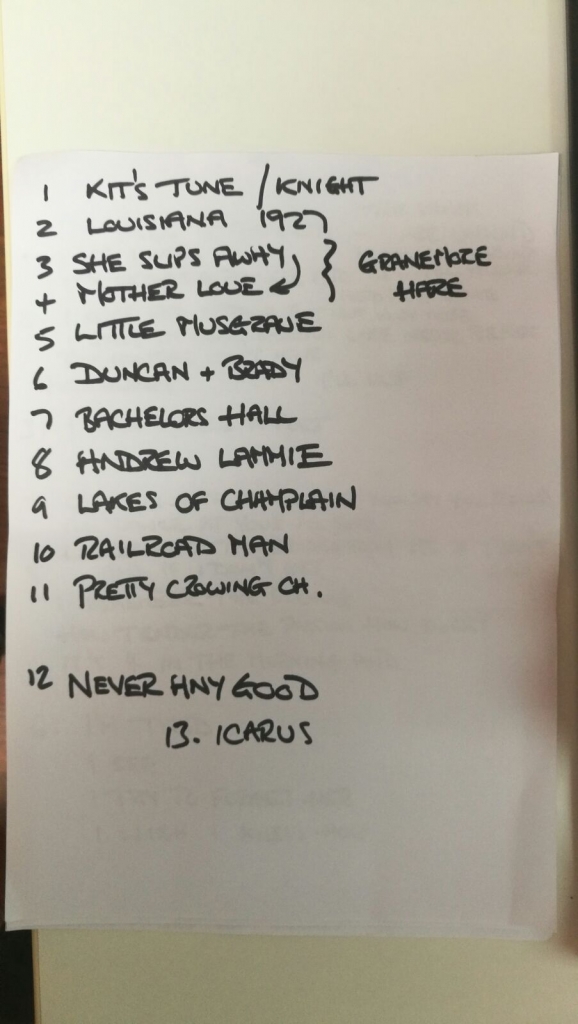 1 KIT'S TUNE / KNIGHT
2 LOUISIANA 1927
3 SHE SLIPS AWAY
4 MOTHER LOVE
GRANEMORE
HARE
5 LITTLE MUSGRAVE
6 DUNCAN + BRADY
7 BACHELORS HALL
8 ANDREW LAMMIE
9 LAKES OF CHAMPLAIN
10 RAILROAD MAN
11 PRETTY CROWING CH.
12 NEVER ANY GOOD
13. ICARUS